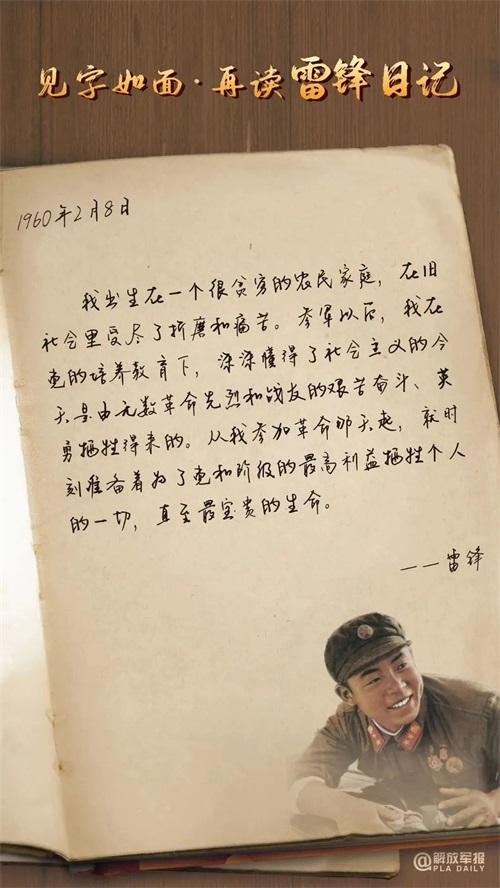 见字如面·再读雷锋日记
1960年2月8日
我出生在一个很贫穷的农民家庭，在旧
社会里受尽了折磨和痛苦。参军以后，我在
党的培养教育下，深深懂得了社会主义的今
天是由无数革命先烈和战友的艰苦奋斗、英
勇牺牲得来的。从我参加革命那天起，就时
刻准备着为了党和阶级的最高利益牺牲个人
的一切，直至最宝贵的生命。
——雷锋
@解放军报
PLA DAILY